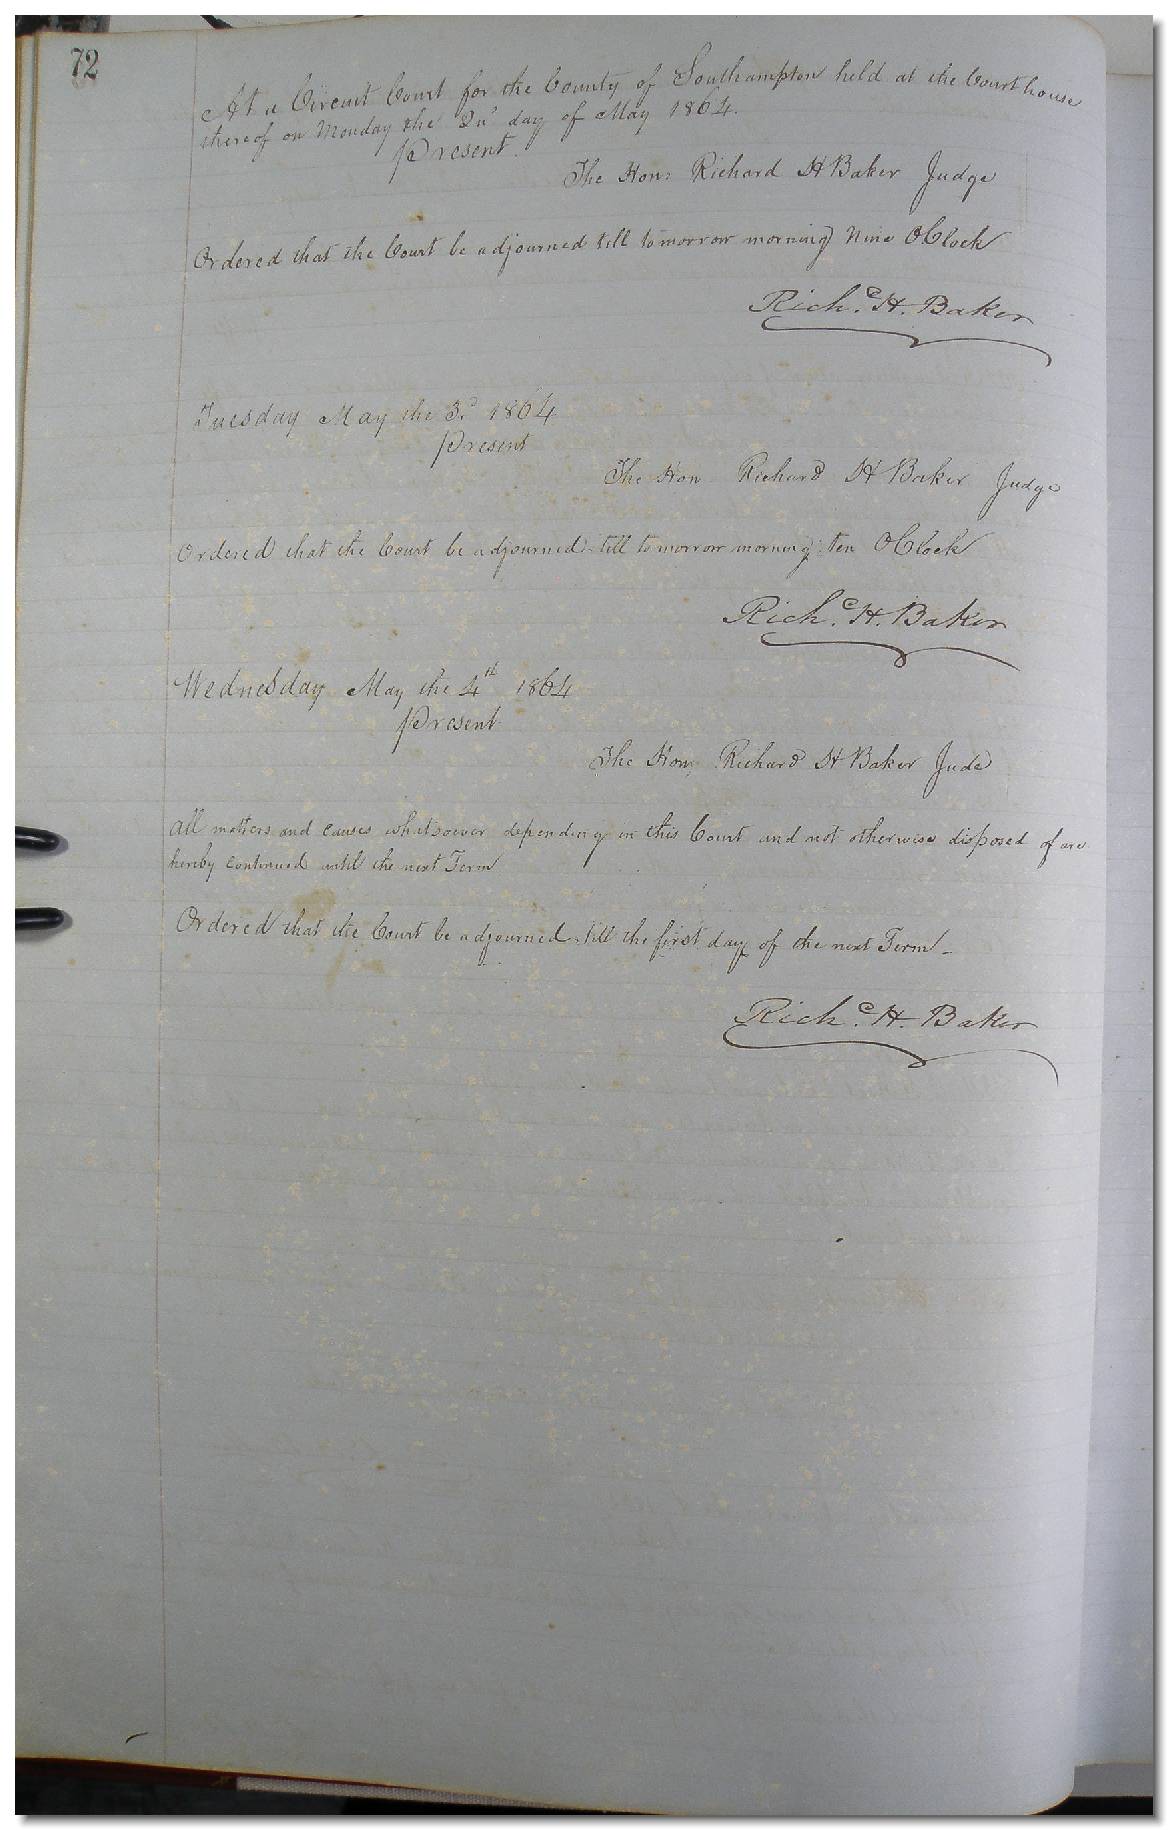 72
At a Circuit Court for the County of Southampton held at the Court house
thereof on Monday the 2nd day of May 1864.
Present.
The Hon: Richard H Baker Judge
Ordered that the Court be adjourned till tomorrow morning Nine OClock
Richd. H. Baker
Tuesday May the 3d 1864
Present
The Hon Richard H Baker Judge
Ordered that the Court be adjourned till tomorrow morning ten OClock
Richd. H. Baker
Wednesday May the 4th 1864
Present
The Hon: Richard H Baker Jude
All matters and causes whatsoever depending in this Court and not otherwise disposed of are
hereby continued until the next Term
Ordered that the Court be adjourned till the first day of the next Term -
Richd. H. Baker